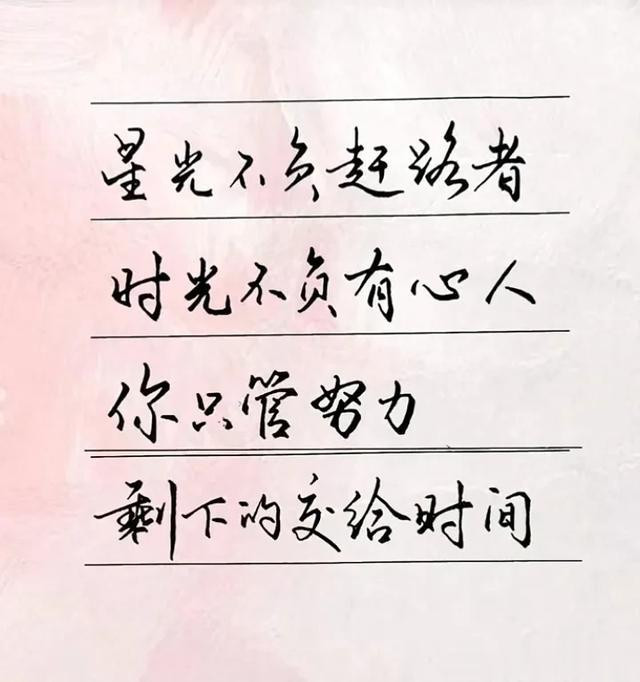 星光不负赶路者
时光不负有心人
你只管努力
剩下的交给时间